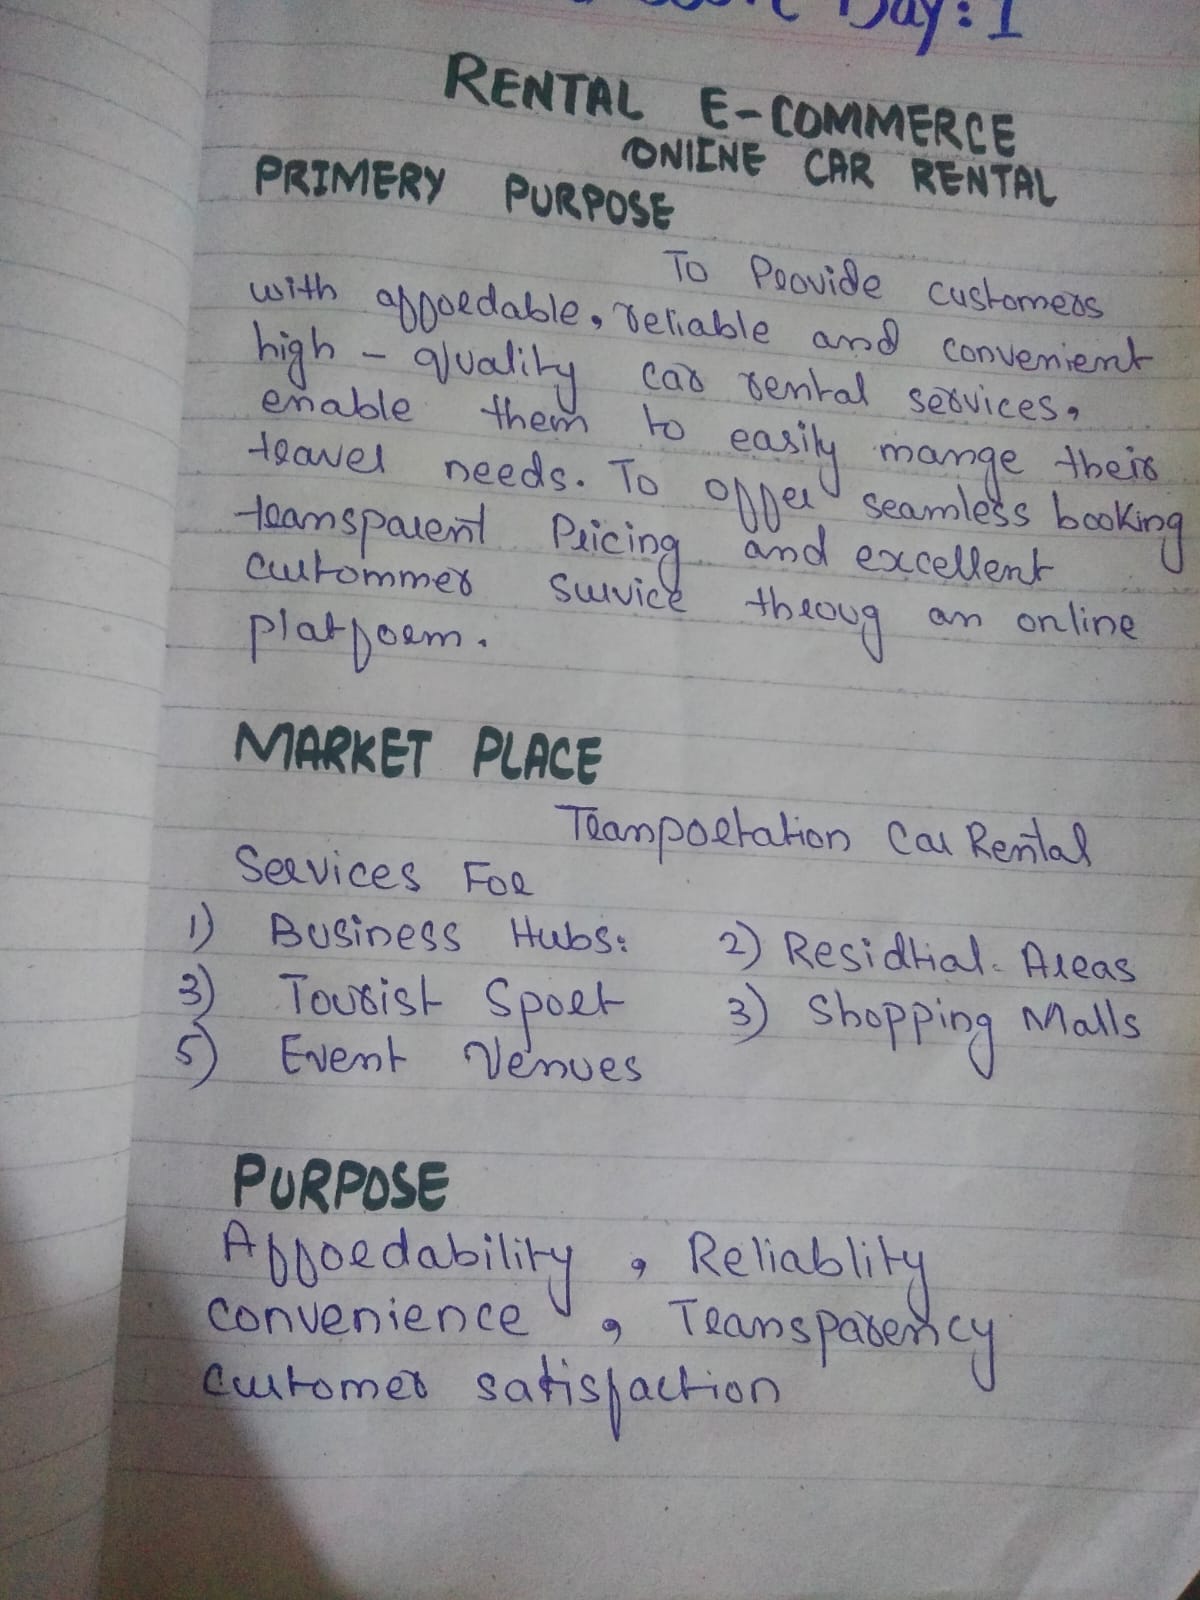 Day: 1
RENTAL E-COMMERCE
ONIINE CAR RENTAL
PRIMERY PURPOSE
To Provide customers
with affordable, reliable and convenient
high - quality car rental services,
enable them to easily mange their
travel needs. To offer seamless booking
transparent Pricing and excellent
custommer service theoug an online
platform.
MARKET PLACE
Tranportation Car Rental
Services For
1) Business Hubs: 2) Residtial. Areas
3) Tourist Sport 3) Shopping Malls
5) Event Venues
PURPOSE
Affordability, Reliablity
convenience, Transparency
customer satisfaction